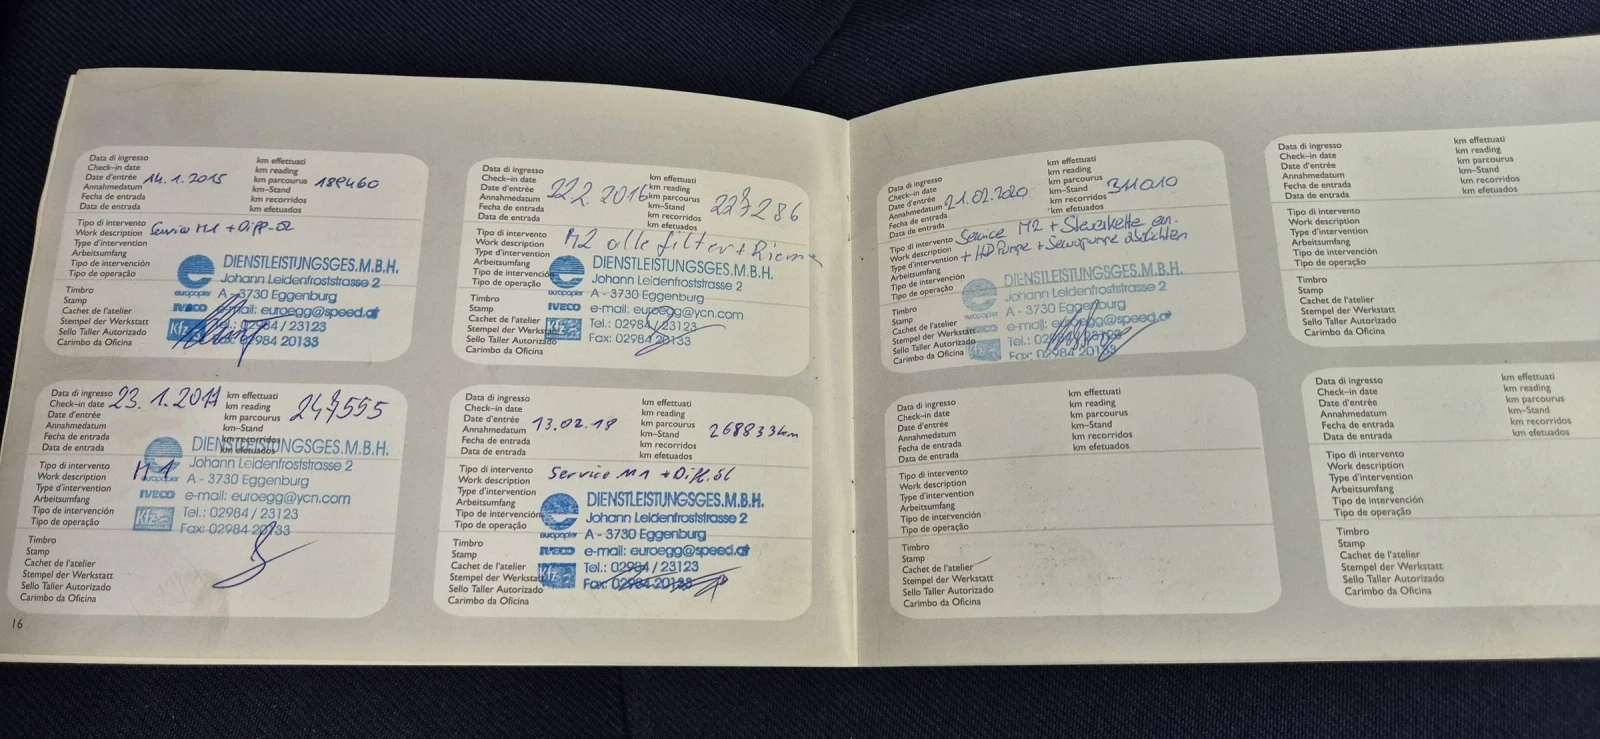 Data di ingresso
Check-in date
Date d'entrée 14.1.2015
Annahmedatum
Fecha de entrada
Data de entrada
km effettuati
km reading
km parcourus 189460
km-Stand
km recorridos
km efetuados
Tipo di intervento
Work description Service M1 + Diff-Öl
Type d'intervention
Arbeitsumfang
Tipo de intervención
Tipo de operação
Timbro
Stamp
Cachet de l'atelier
Stempel der Werkstatt
Sello Taller Autorizado
Carimbo da Oficina
DIENSTLEISTUNGSGES.M.B.H.
Johann Leidenfroststrasse 2
europapier A - 3730 Eggenburg
IVECO e-mail: euroegg@speed.at
Kfz Tel.: 02984 / 23123
Fax: 02984 20133
Data di ingresso
Check-in date
Date d'entrée 22.2.2016
Annahmedatum
Fecha de entrada
Data de entrada
km effettuati
km reading
km parcourus 227286
km-Stand
km recorridos
km efetuados
Tipo di intervento
Work description M2 alle filter + Rieme
Type d'intervention
Arbeitsumfang
Tipo de intervención
Tipo de operação
Timbro
Stamp
Cachet de l'atelier
Stempel der Werkstatt
Sello Taller Autorizado
Carimbo da Oficina
DIENSTLEISTUNGSGES.M.B.H.
Johann Leidenfroststrasse 2
europapier A - 3730 Eggenburg
IVECO e-mail: euroegg@ycn.com
Kfz Tel.: 02984 / 23123
Fax: 02984 20133
Data di ingresso
Check-in date 23.1.2017
Date d'entrée
Annahmedatum
Fecha de entrada
Data de entrada
km effettuati
km reading
km parcourus 247555
km-Stand
km recorridos
km efetuados
Tipo di intervento
Work description M1
Type d'intervention
Arbeitsumfang
Tipo de intervención
Tipo de operação
Timbro
Stamp
Cachet de l'atelier
Stempel der Werkstatt
Sello Taller Autorizado
Carimbo da Oficina
DIENSTLEISTUNGSGES.M.B.H.
Johann Leidenfroststrasse 2
A - 3730 Eggenburg
IVECO e-mail: euroegg@ycn.com
Kfz Tel.: 02984 / 23123
Fax: 02984 20133
Data di ingresso
Check-in date
Date d'entrée
Annahmedatum 13.02.18
Fecha de entrada
Data de entrada
km effettuati
km reading
km parcourus
km-Stand 268833km
km recorridos
km efetuados
Tipo di intervento
Work description Service M1 + Diff.öl
Type d'intervention
Arbeitsumfang
Tipo de intervención
Tipo de operação
Timbro
Stamp
Cachet de l'atelier
Stempel der Werkstatt
Sello Taller Autorizado
Carimbo da Oficina
DIENSTLEISTUNGSGES.M.B.H.
Johann Leidenfroststrasse 2
europapier A - 3730 Eggenburg
IVECO e-mail: euroegg@speed.at
Kfz Tel.: 02984 / 23123
Fax: 02984 20133
16
Data di ingresso
Check-in date
Date d'entrée 21.02.2020
Annahmedatum
Fecha de entrada
Data de entrada
km effettuati
km reading
km parcourus 311010
km-Stand
km recorridos
km efetuados
Tipo di intervento Service M2 + Steuerkette ern.
Work description
Type d'intervention + HD Pumpe + Servopumpe abdichten
Arbeitsumfang
Tipo de intervención
Tipo de operação
Timbro
Stamp
Cachet de l'atelier
Stempel der Werkstatt
Sello Taller Autorizado
Carimbo da Oficina
DIENSTLEISTUNGSGES.M.B.H.
Johann Leidenfroststrasse 2
A - 3730 Eggenburg
IVECO e-mail: euroegg@speed.at
Kfz Tel.: 02984 / 23123
Fax: 02984 20133
Data di ingresso
Check-in date
Date d'entrée
Annahmedatum
Fecha de entrada
Data de entrada
km effettuati
km reading
km parcourus
km-Stand
km recorridos
km efetuados
Tipo di intervento
Work description
Type d'intervention
Arbeitsumfang
Tipo de intervención
Tipo de operação
Timbro
Stamp
Cachet de l'atelier
Stempel der Werkstatt
Sello Taller Autorizado
Carimbo da Oficina
Data di ingresso
Check-in date
Date d'entrée
Annahmedatum
Fecha de entrada
Data de entrada
km effettuati
km reading
km parcourus
km-Stand
km recorridos
km efetuados
Tipo di intervento
Work description
Type d'intervention
Arbeitsumfang
Tipo de intervención
Tipo de operação
Timbro
Stamp
Cachet de l'atelier
Stempel der Werkstatt
Sello Taller Autorizado
Carimbo da Oficina
Data di ingresso
Check-in date
Date d'entrée
Annahmedatum
Fecha de entrada
Data de entrada
km effettuati
km reading
km parcourus
km-Stand
km recorridos
km efetuados
Tipo di intervento
Work description
Type d'intervention
Arbeitsumfang
Tipo de intervención
Tipo de operação
Timbro
Stamp
Cachet de l'atelier
Stempel der Werkstatt
Sello Taller Autorizado
Carimbo da Oficina